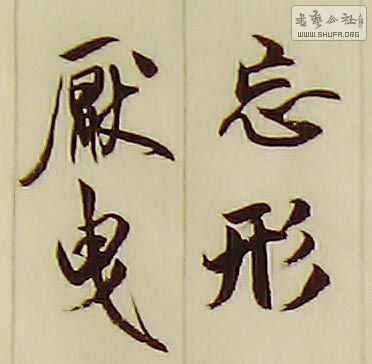 忘形
厭曳
書藝公社
WWW.SHUFA.ORG